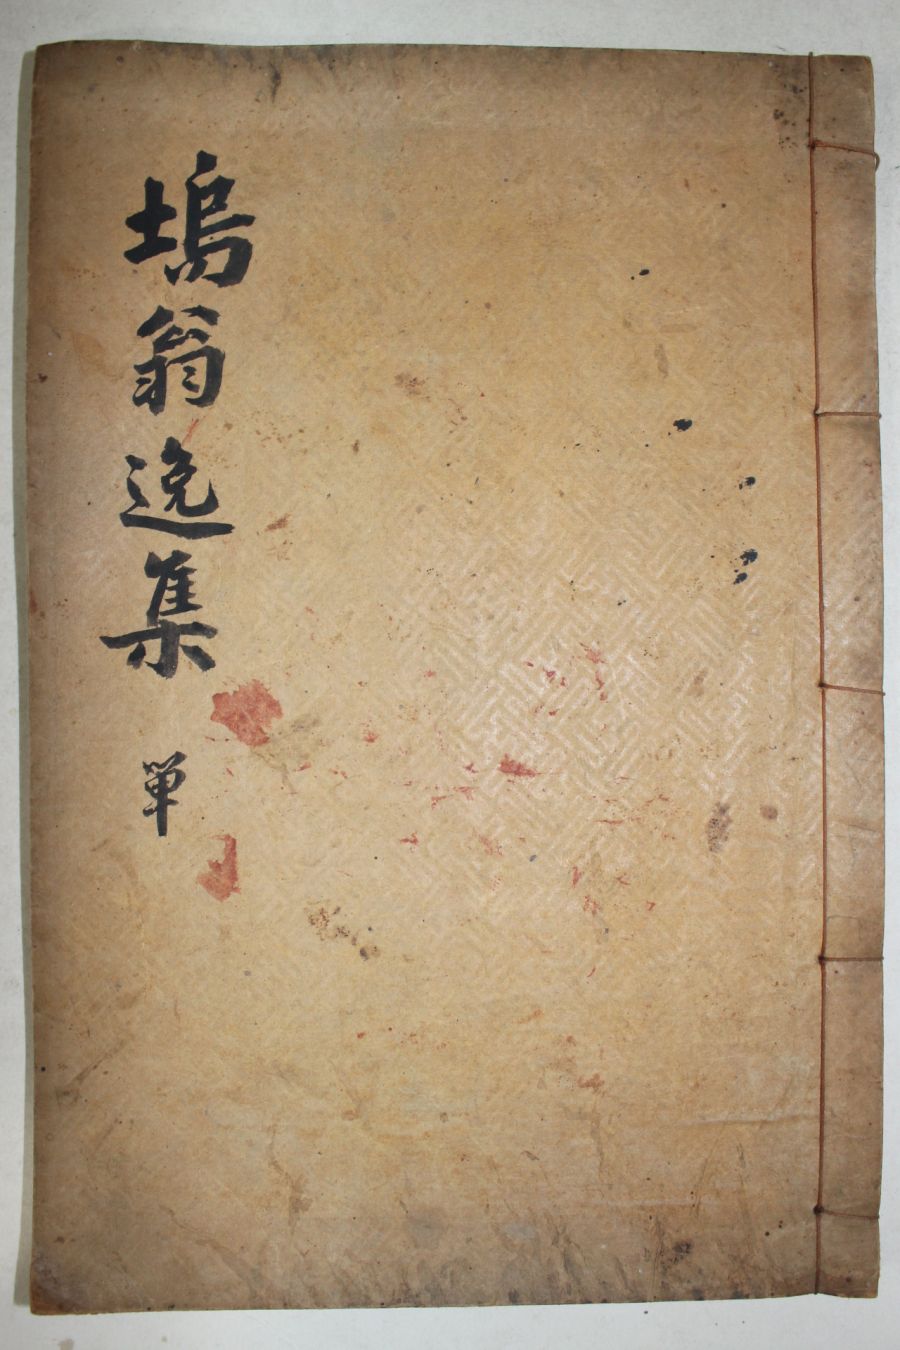 塢翁逸集
単